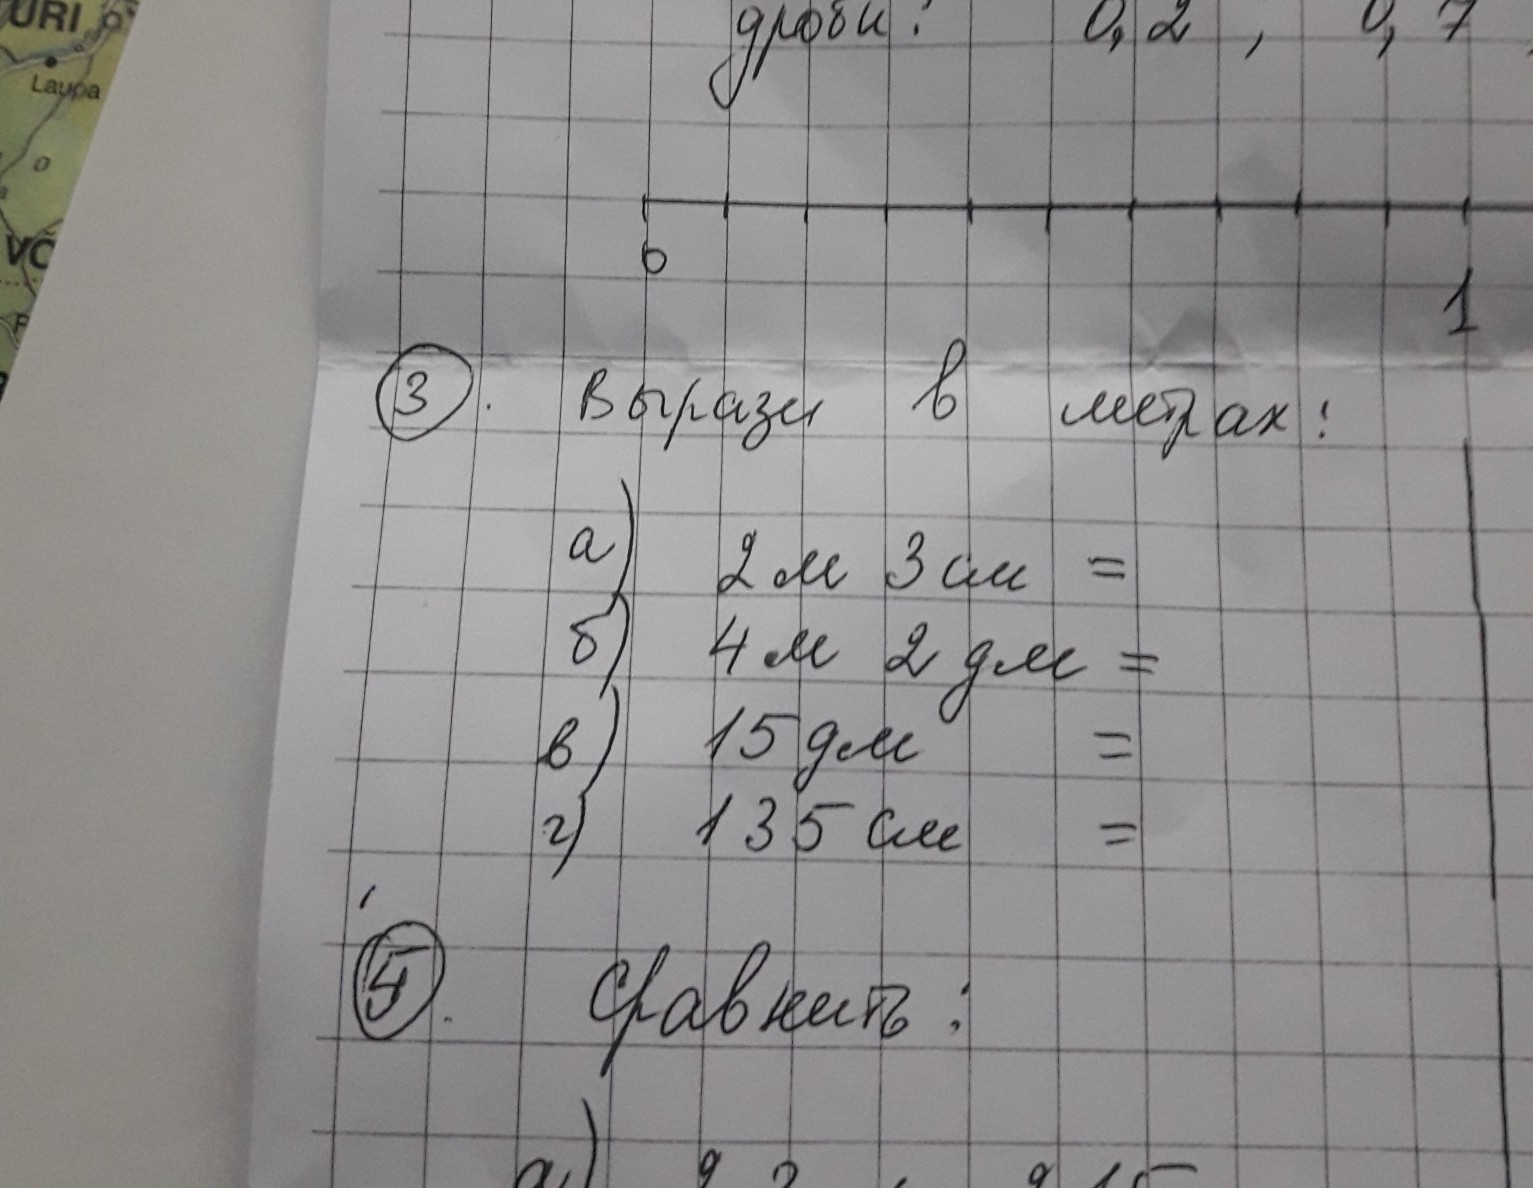 URI
Laupa
VÕ
дроби: 0,2 , 0,7
0 1
3. Вырази в метрах:
а) 2 м 3 см =
б) 4 м 2 дм =
в) 15 дм =
г) 135 см =
Сравнить:
а)